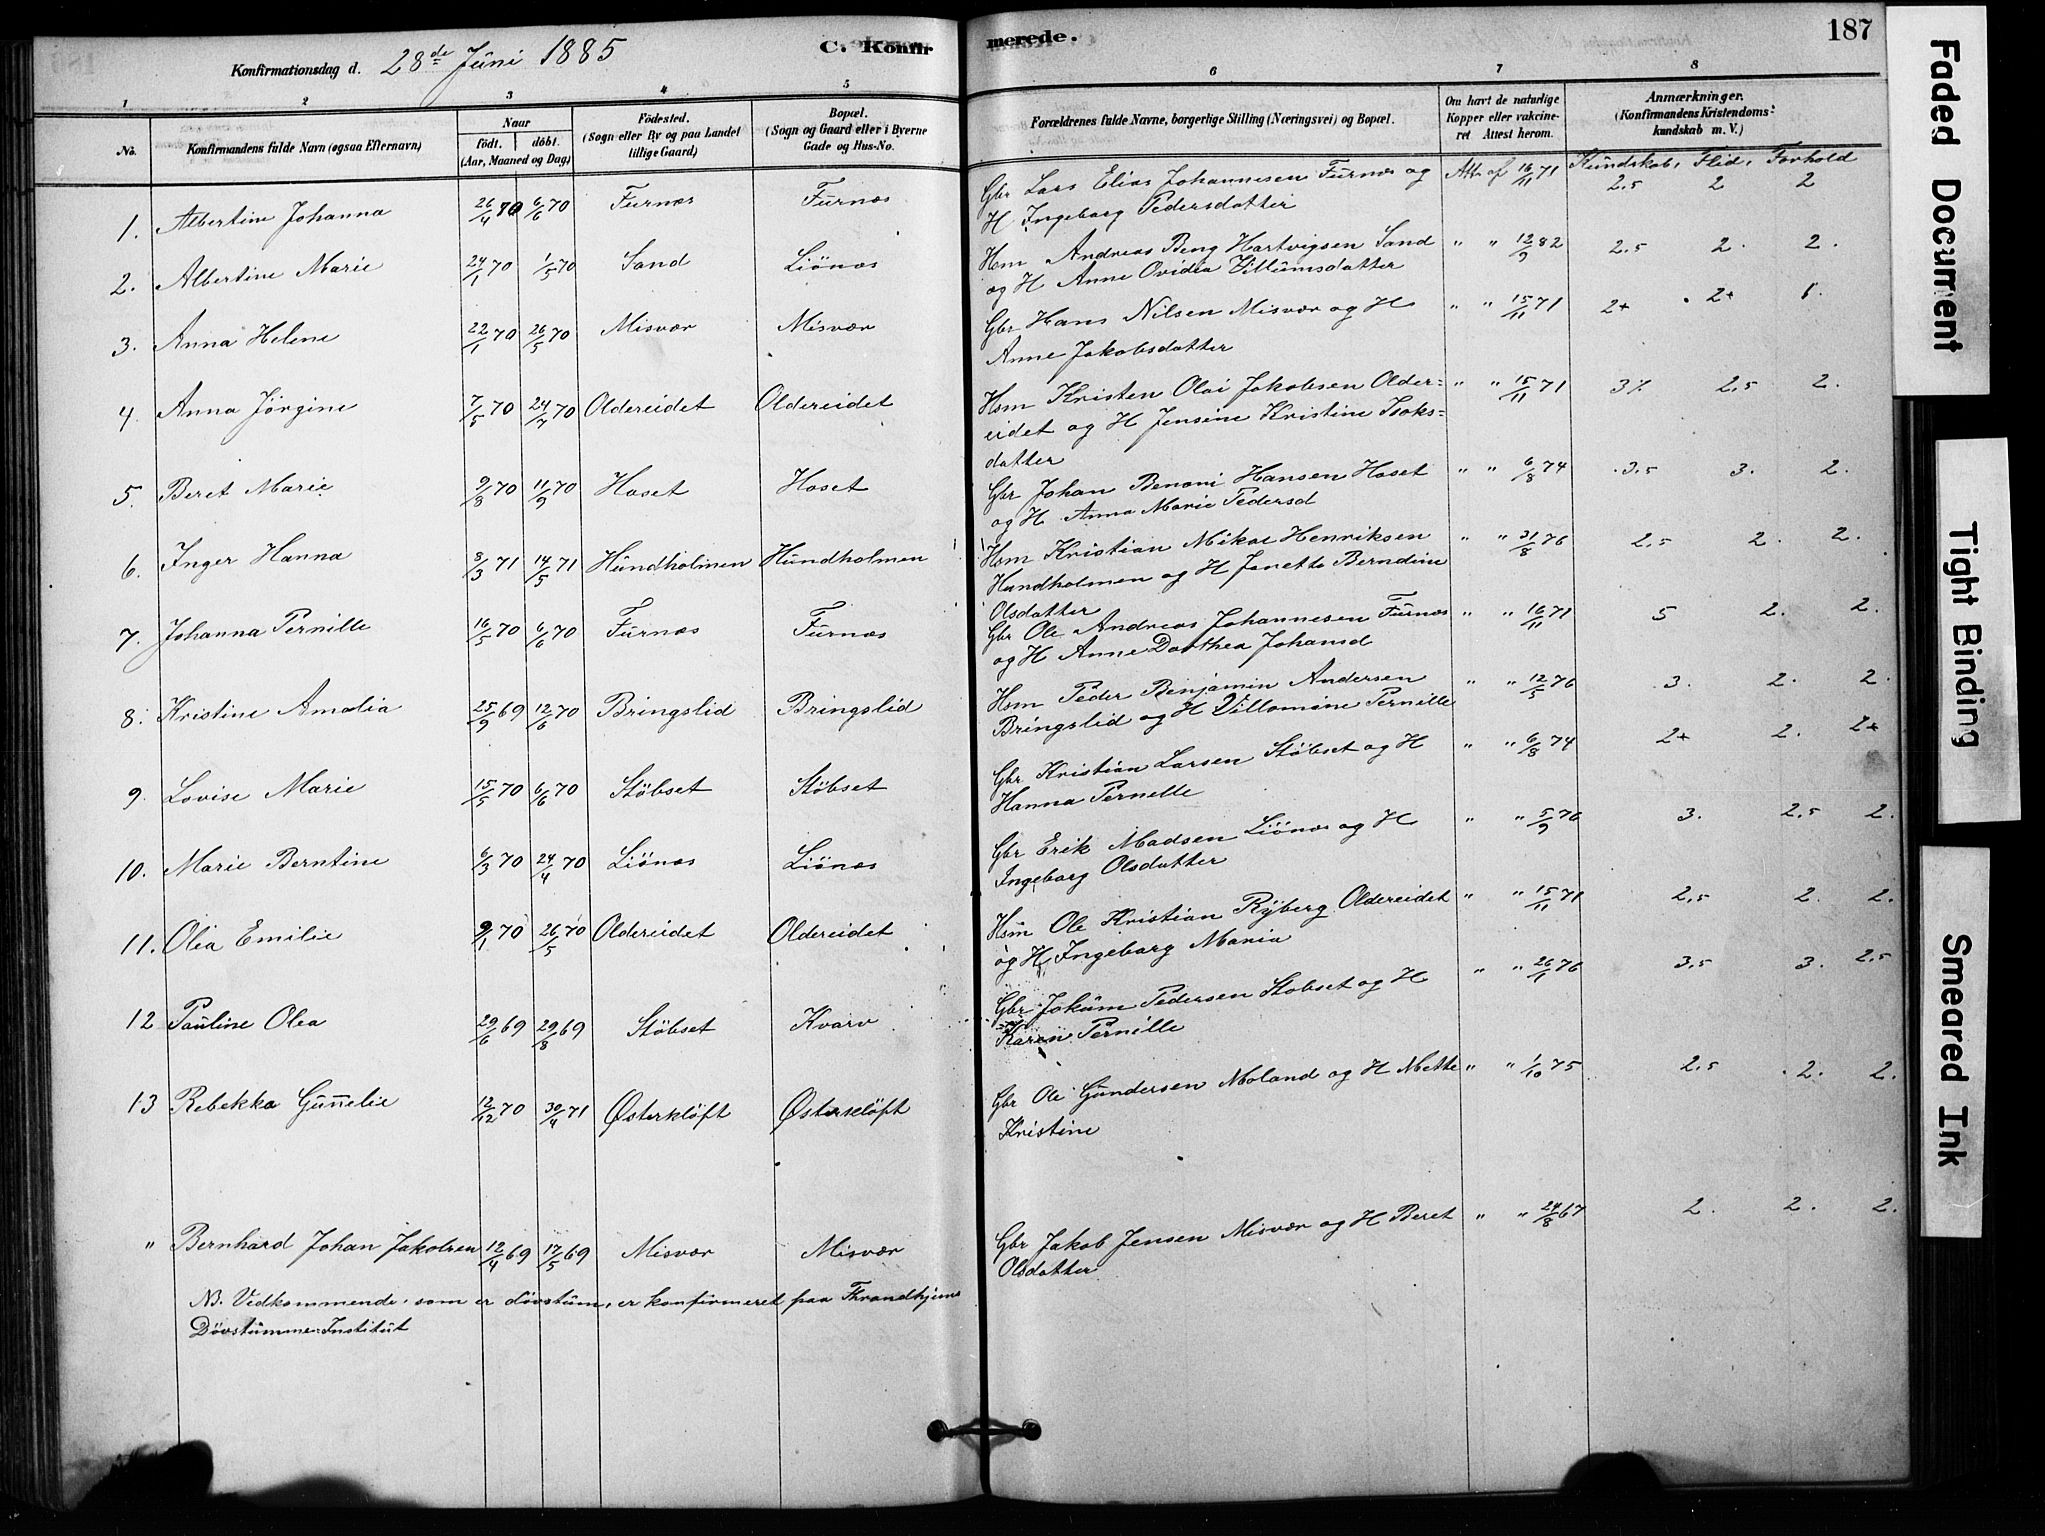 Konfirmationsdag d. 28de Juni 1885 C. Konfirmerede. 187
1 2 3 4 5 6 7 8
No. Konfirmandens fulde Navn (ogsaa Efternavn) Naar født. døbt. (Aar, Maaned og Dag) Fødested. (Sogn eller By og paa Landet tillige Gaard) Bopæl. (Sogn og Gaard eller i Byerne Gade og Hus-No. Forældrenes fulde Navne, borgerlige Stilling (Næringsvei) og Bopæl. Om havt de naturlige Kopper eller vakcineret Attest herom. Anmærkninger. (Konfirmandens Kristendomskundskab m. V.)
Kundskab, Flid, Forhold
1. Albertine Johanna 26/4 70 6/6 70 Furnæs Furnæs Gbr Lars Elias Johannesen Furnæs og Att. af 16/11 71 2,5 2 2
H Ingeborg Pedersdatter
2. Albertine Marie 24/1 70 1/5 70 Sand Liønæs Hsm Andreas Beng Hartvigsen Sand " " 12/9 82 2,5 2. 2.
og H Anne Ovidia Villumsdatter
3. Anna Helene 22/1 70 26/5 70 Misvær Misvær Gbr Hans Nilsen Misvær og H " " 15/11 71 2+ 2+ 1.
Anne Jakobsdatter
4. Anna Jörgine 7/5 70 24/7 70 Oldereidet Oldereidet Hsm Kristen Olai Jakobsen Older= " " 15/11 71 3 2,5 2.
eidet og H Jensine Kristine Isaks=
datter
5. Beret Marie 9/8 70 11/9 70 Hoset Hoset Gbr Johan Benoni Hansen Hoset " " 6/8 74 3,5 3. 2.
og H. Anna Marie Pedersd
6. Inger Hanna 8/3 71 14/5 71 Hundholmen Hundholmen Hsm Kristian Mikal Henriksen " " 31/8 76 2,5 2. 2.
Hundholmen og H Jenette Berndine
Olsdatter
7. Johanna Pernille 16/5 70 6/6 70 Furnæs Furnæs Gbr Ole Andreas Johannesen Furnæs " " 16/11 71 5 2. 2.
og H Anne Dorthea Johansd
8. Kristine Amalia 25/9 69 12/6 70 Bringslid Bringslid Hsm Peder Benjamin Andersen " " 12/5 76 3. 2. 2.
Bringslid og H Villomine Pernille
9. Lovise Marie 15/5 70 6/6 70 Støbset Støbset Gbr Kristian Larsen Støbset og H " " 6/8 74 2+ 2. 2+
Hanna Pernelle
10. Marie Berntine 6/3 70 24/4 70 Liønæs Liønæs Gbr Erik Madsen Liønæs og H " " 5/9 76 3. 2,5 2.
Ingeborg Olsdatter
11. Olea Emilie 9/1 70 26/5 70 Oldereidet Oldereidet Hsm Ole Kristian Ryberg Oldereidet " " 15/11 71 2,5 2. 2.
og H Ingeborg Maria
12 Pauline Olea 29/6 69 29/8 69 Støbset Kvarv Gbr Jokum Pedersen Støbset og H " " 26/1 76 3,5 3. 2,5
Karen Pernille
13 Rebekka Gunnelie 12/12 70 30/4 71 Østerkløft Østerkløft Gbr Ole Gundersen Moland og H Mette " " 1/10 75 2,5 2. 2.
Kristine
" Bernhard Johan Jakobsen 12/4 69 17/5 69 Misvær Misvær Gbr Jakob Jensen Misvær og H Beret " " 24/8 67 2. 2. 2.
Olsdatter
NB. Vedkommende, som er døvstum, er konfirmeret paa Throndhjems
Døvstumme-Institut
Faded Document
Tight Binding
Smeared Ink